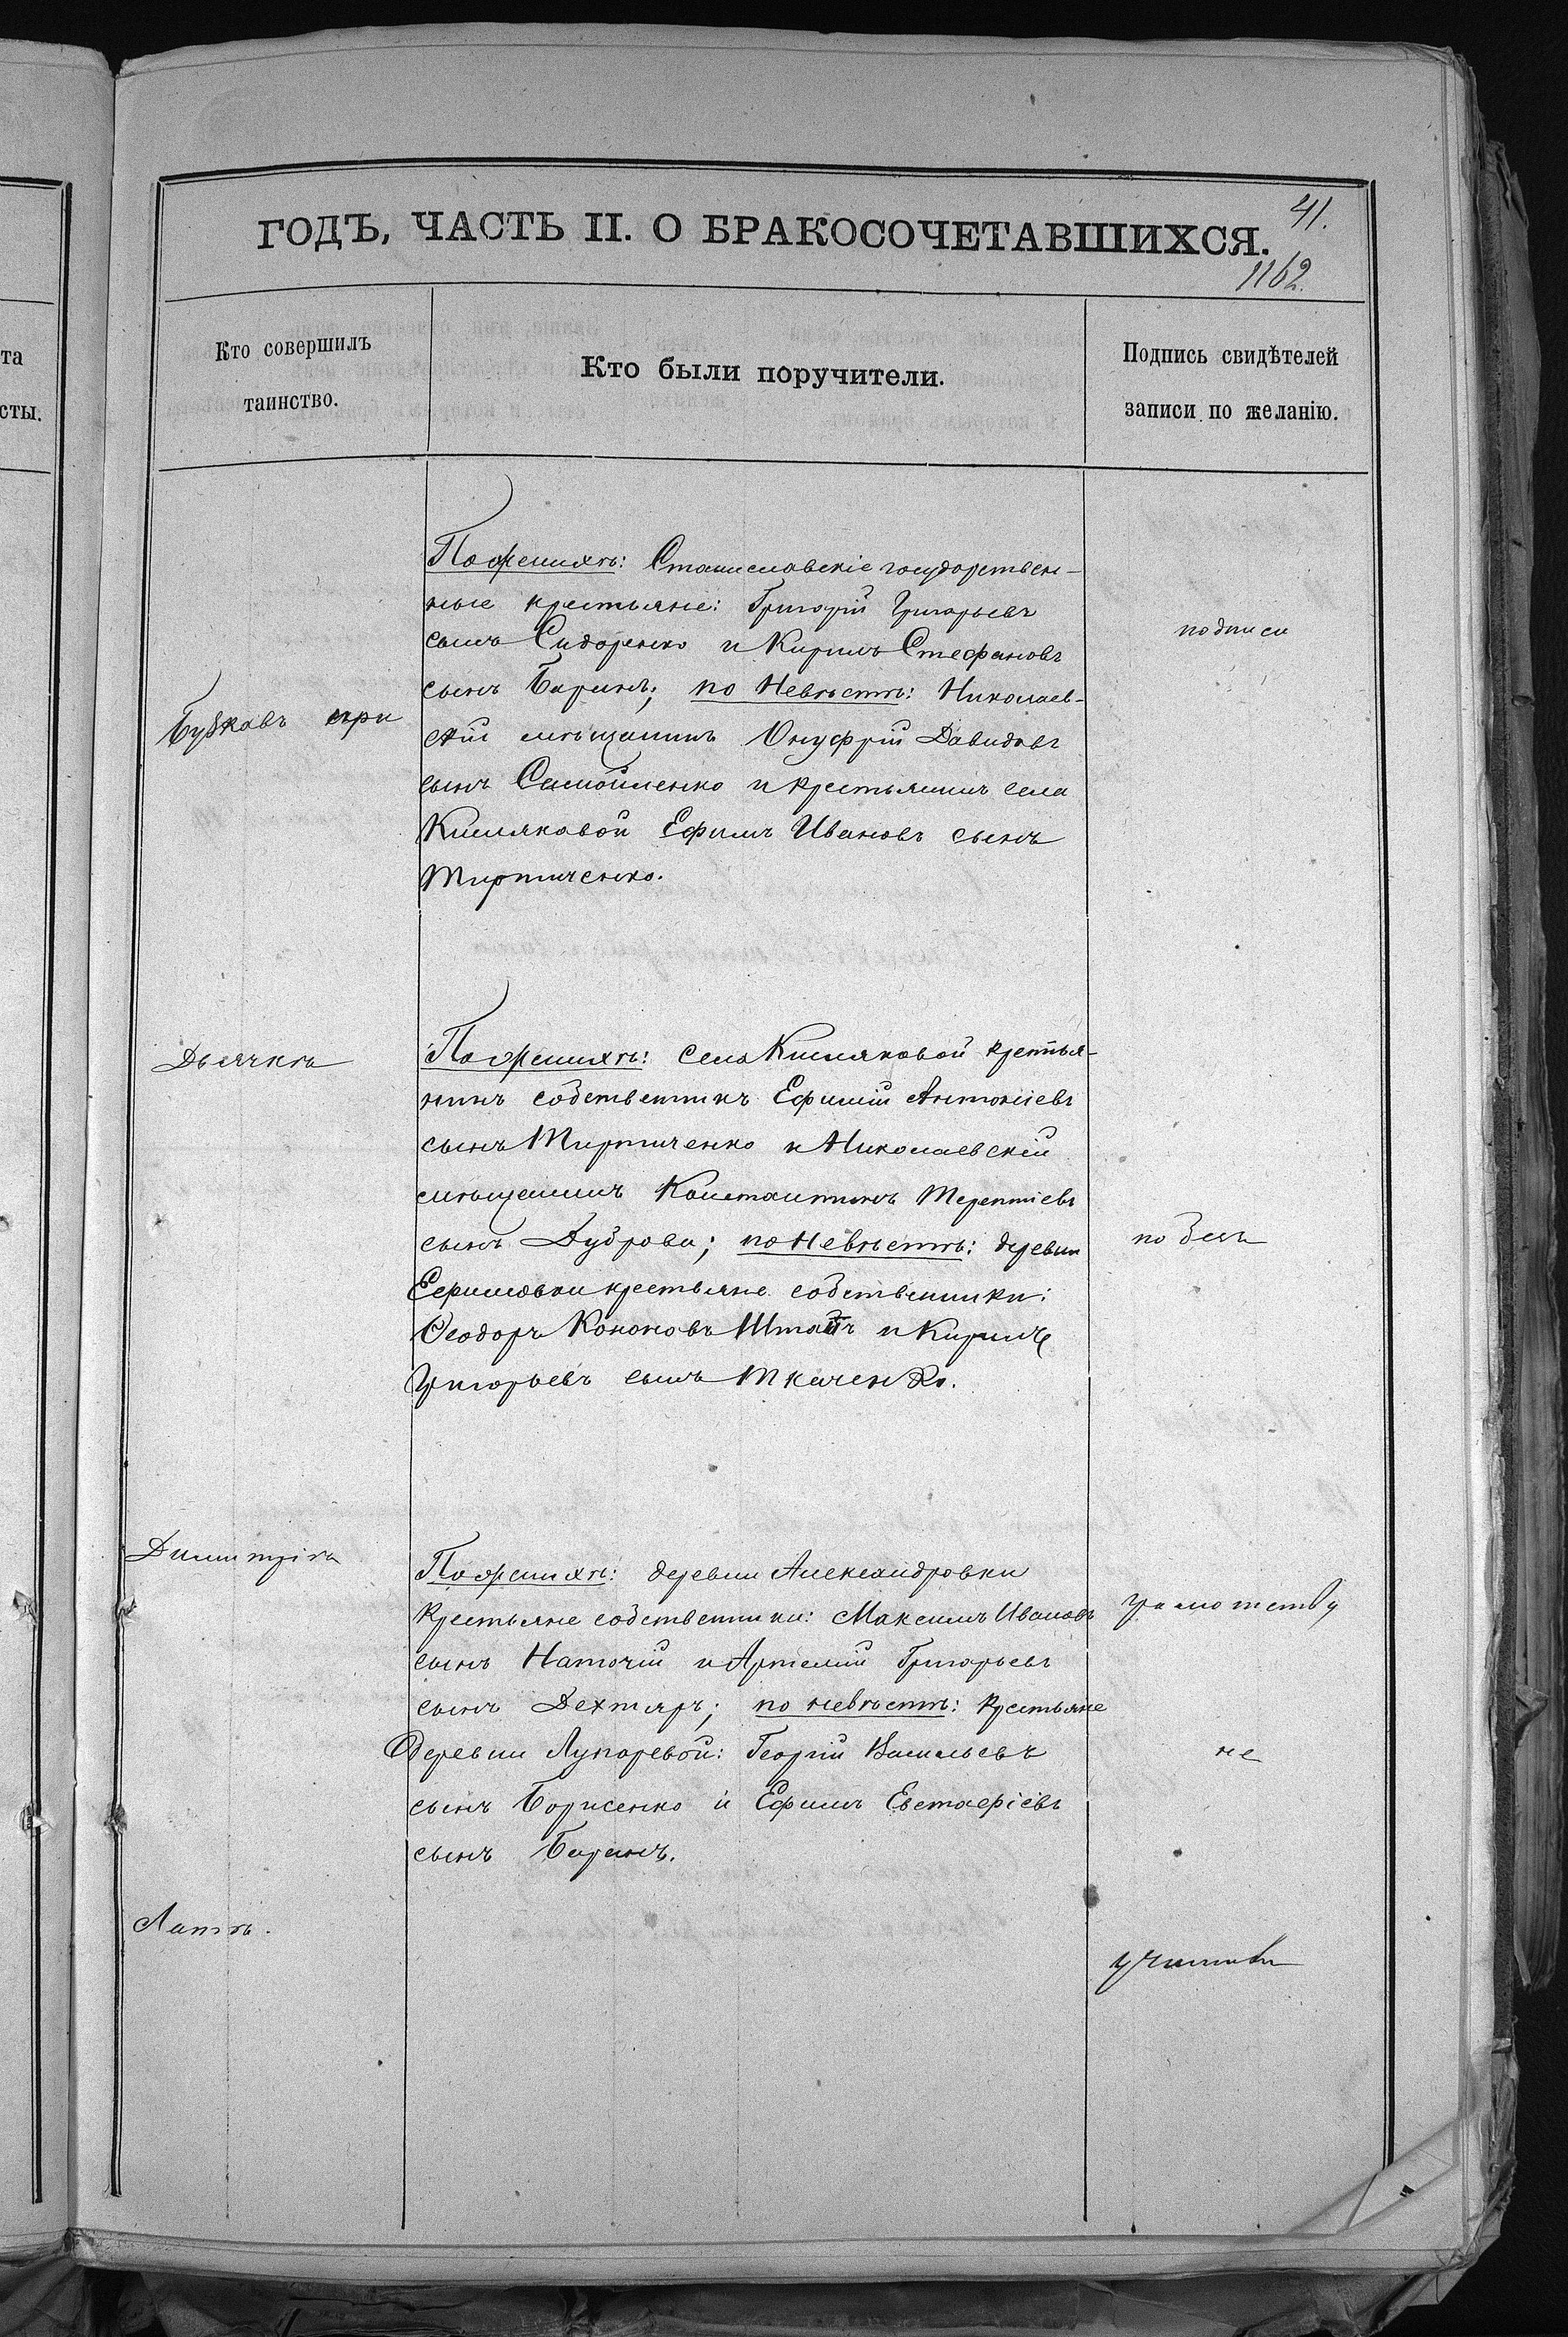 та
сты.
41.
ГОДЪ, ЧАСТЬ II. О БРАКОСОЧЕТАВШИХСЯ.
1162.
Кто совершилъ
таинство.
Кто были поручители.
Подпись свидѣтелей
записи по желанію.
По женихѣ: Станиславскіе государствен-
ные крестьяне: Григорій Григорьевъ
сынъ Сидоренко и Кирилъ Стефановъ
сынъ Баранъ; по Невѣстѣ: Николаев-
скій мѣщанинъ Онуфрій Давидовъ
сынъ Самойленко и крестьянинъ села
Кисляковой Ефимъ Ивановъ сынъ
Тиртиченко.
при
подписи
Дьячкѣ
По женихѣ: села Кисляковой крестья-
нинъ собственникъ Ефимій Антоніевъ
сынъ Тиртиченко и Николаевскій
мѣщанинъ Константинъ Терентіевъ
сынъ Дуброва; по Невѣстѣ: деревни
Ефимовки крестьяне собственники:
Ѳеодоръ Кононовъ и Кирилъ
Григорьевъ сынъ Ткаченко.
Димитріѣ
По женихѣ: деревни Александровки
крестьяне собственники: Максимъ Ивановъ
сынъ Наточій и Артемій Григорьевъ
сынъ Дехтярь; по невѣстѣ: крестьяне
деревни Лупаревой: Георгій Васильевъ
сынъ Борисенко и Ефимъ Евстафіевъ
сынъ Баранъ.
грамотству
не
Лаптѣ.